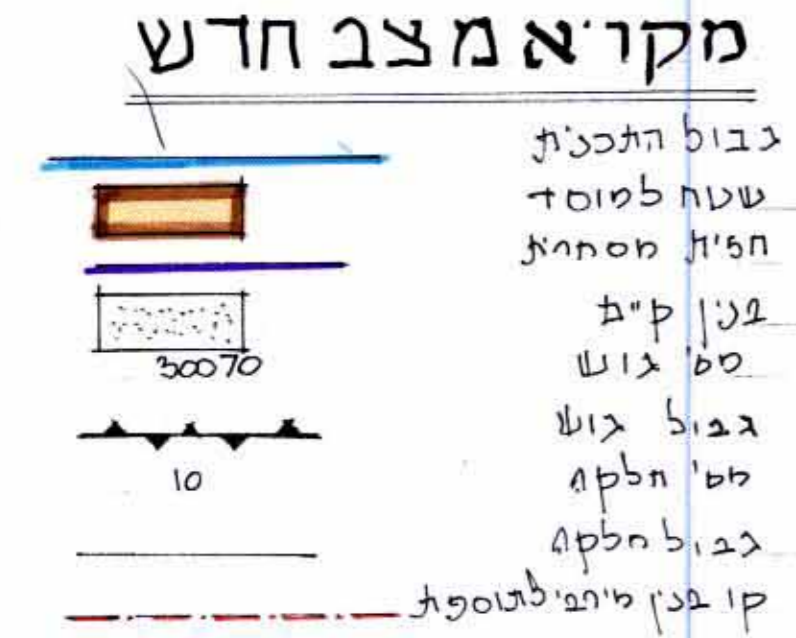 מקרא מצב חדש
גבול התכנית
שטח למוסד
חזית מסחרית
בנין קיים
מס' גוש
30070
גבול גוש
מס' חלקה
10
גבול חלקה
קו בנין מירבי לתוספת